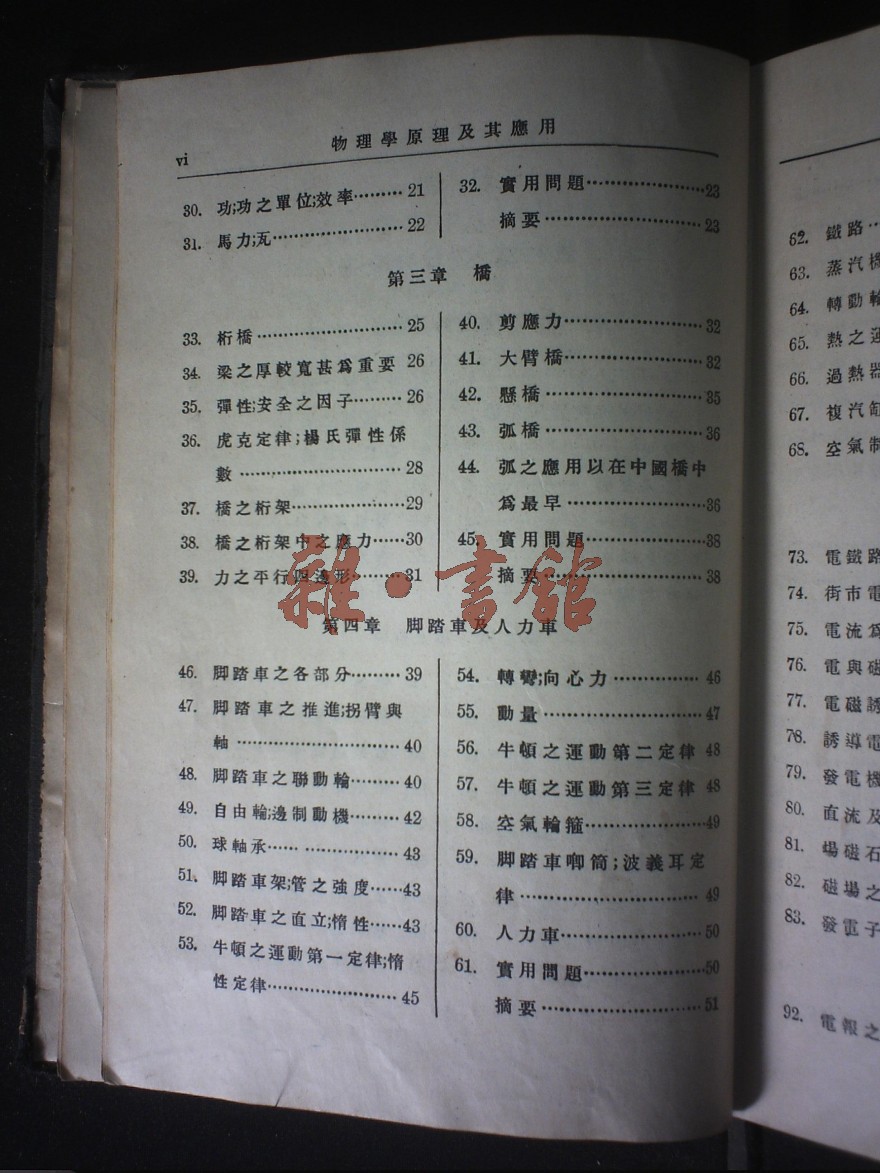 vi
物理學原理及其應用
30. 功;功之單位;效率………21
31. 馬力;瓦…………………22
32. 實用問題…………………23
摘要…………………23
第三章 橋
33. 桁橋…………………25
34. 梁之厚較寬甚爲重要 26
35. 彈性;安全之因子………26
36. 虎克定律;楊氏彈性係
數…………………28
37. 橋之桁架………………29
38. 橋之桁架中之應力……30
39. 力之平行四邊形………31
40. 剪應力…………………32
41. 大臂橋…………………32
42. 懸橋…………………35
43. 弧橋…………………36
44. 弧之應用以在中國橋中
爲最早…………………36
45. 實用問題………………38
摘要…………………38
雜·書館
第四章 脚踏車及人力車
46. 脚踏車之各部分………39
47. 脚踏車之推進;拐臂與
軸…………………40
48. 脚踏車之聯動輪………40
49. 自由輪;邊制動機………42
50. 球軸承…………………43
51. 脚踏車架;管之強度……43
52. 脚踏車之直立;惰性……43
53. 牛頓之運動第一定律;惰
性定律…………………45
54. 轉彎;向心力……………46
55. 動量…………………47
56. 牛頓之運動第二定律 48
57. 牛頓之運動第三定律 48
58. 空氣輪箍………………49
59. 脚踏車唧筒;波義耳定
律…………………49
60. 人力車…………………50
61. 實用問題………………50
摘要…………………51
62. 鐵路
63. 蒸汽機
64. 轉動輪
65. 熱之運
66. 過熱器
67. 複汽缸
68. 空氣制
73. 電鐵路
74. 街市電
75. 電流爲
76. 電與磁
77. 電磁誘
78. 誘導電
79. 發電機
80. 直流及
81. 場磁石
82. 磁場之
83. 發電子
92. 電報之